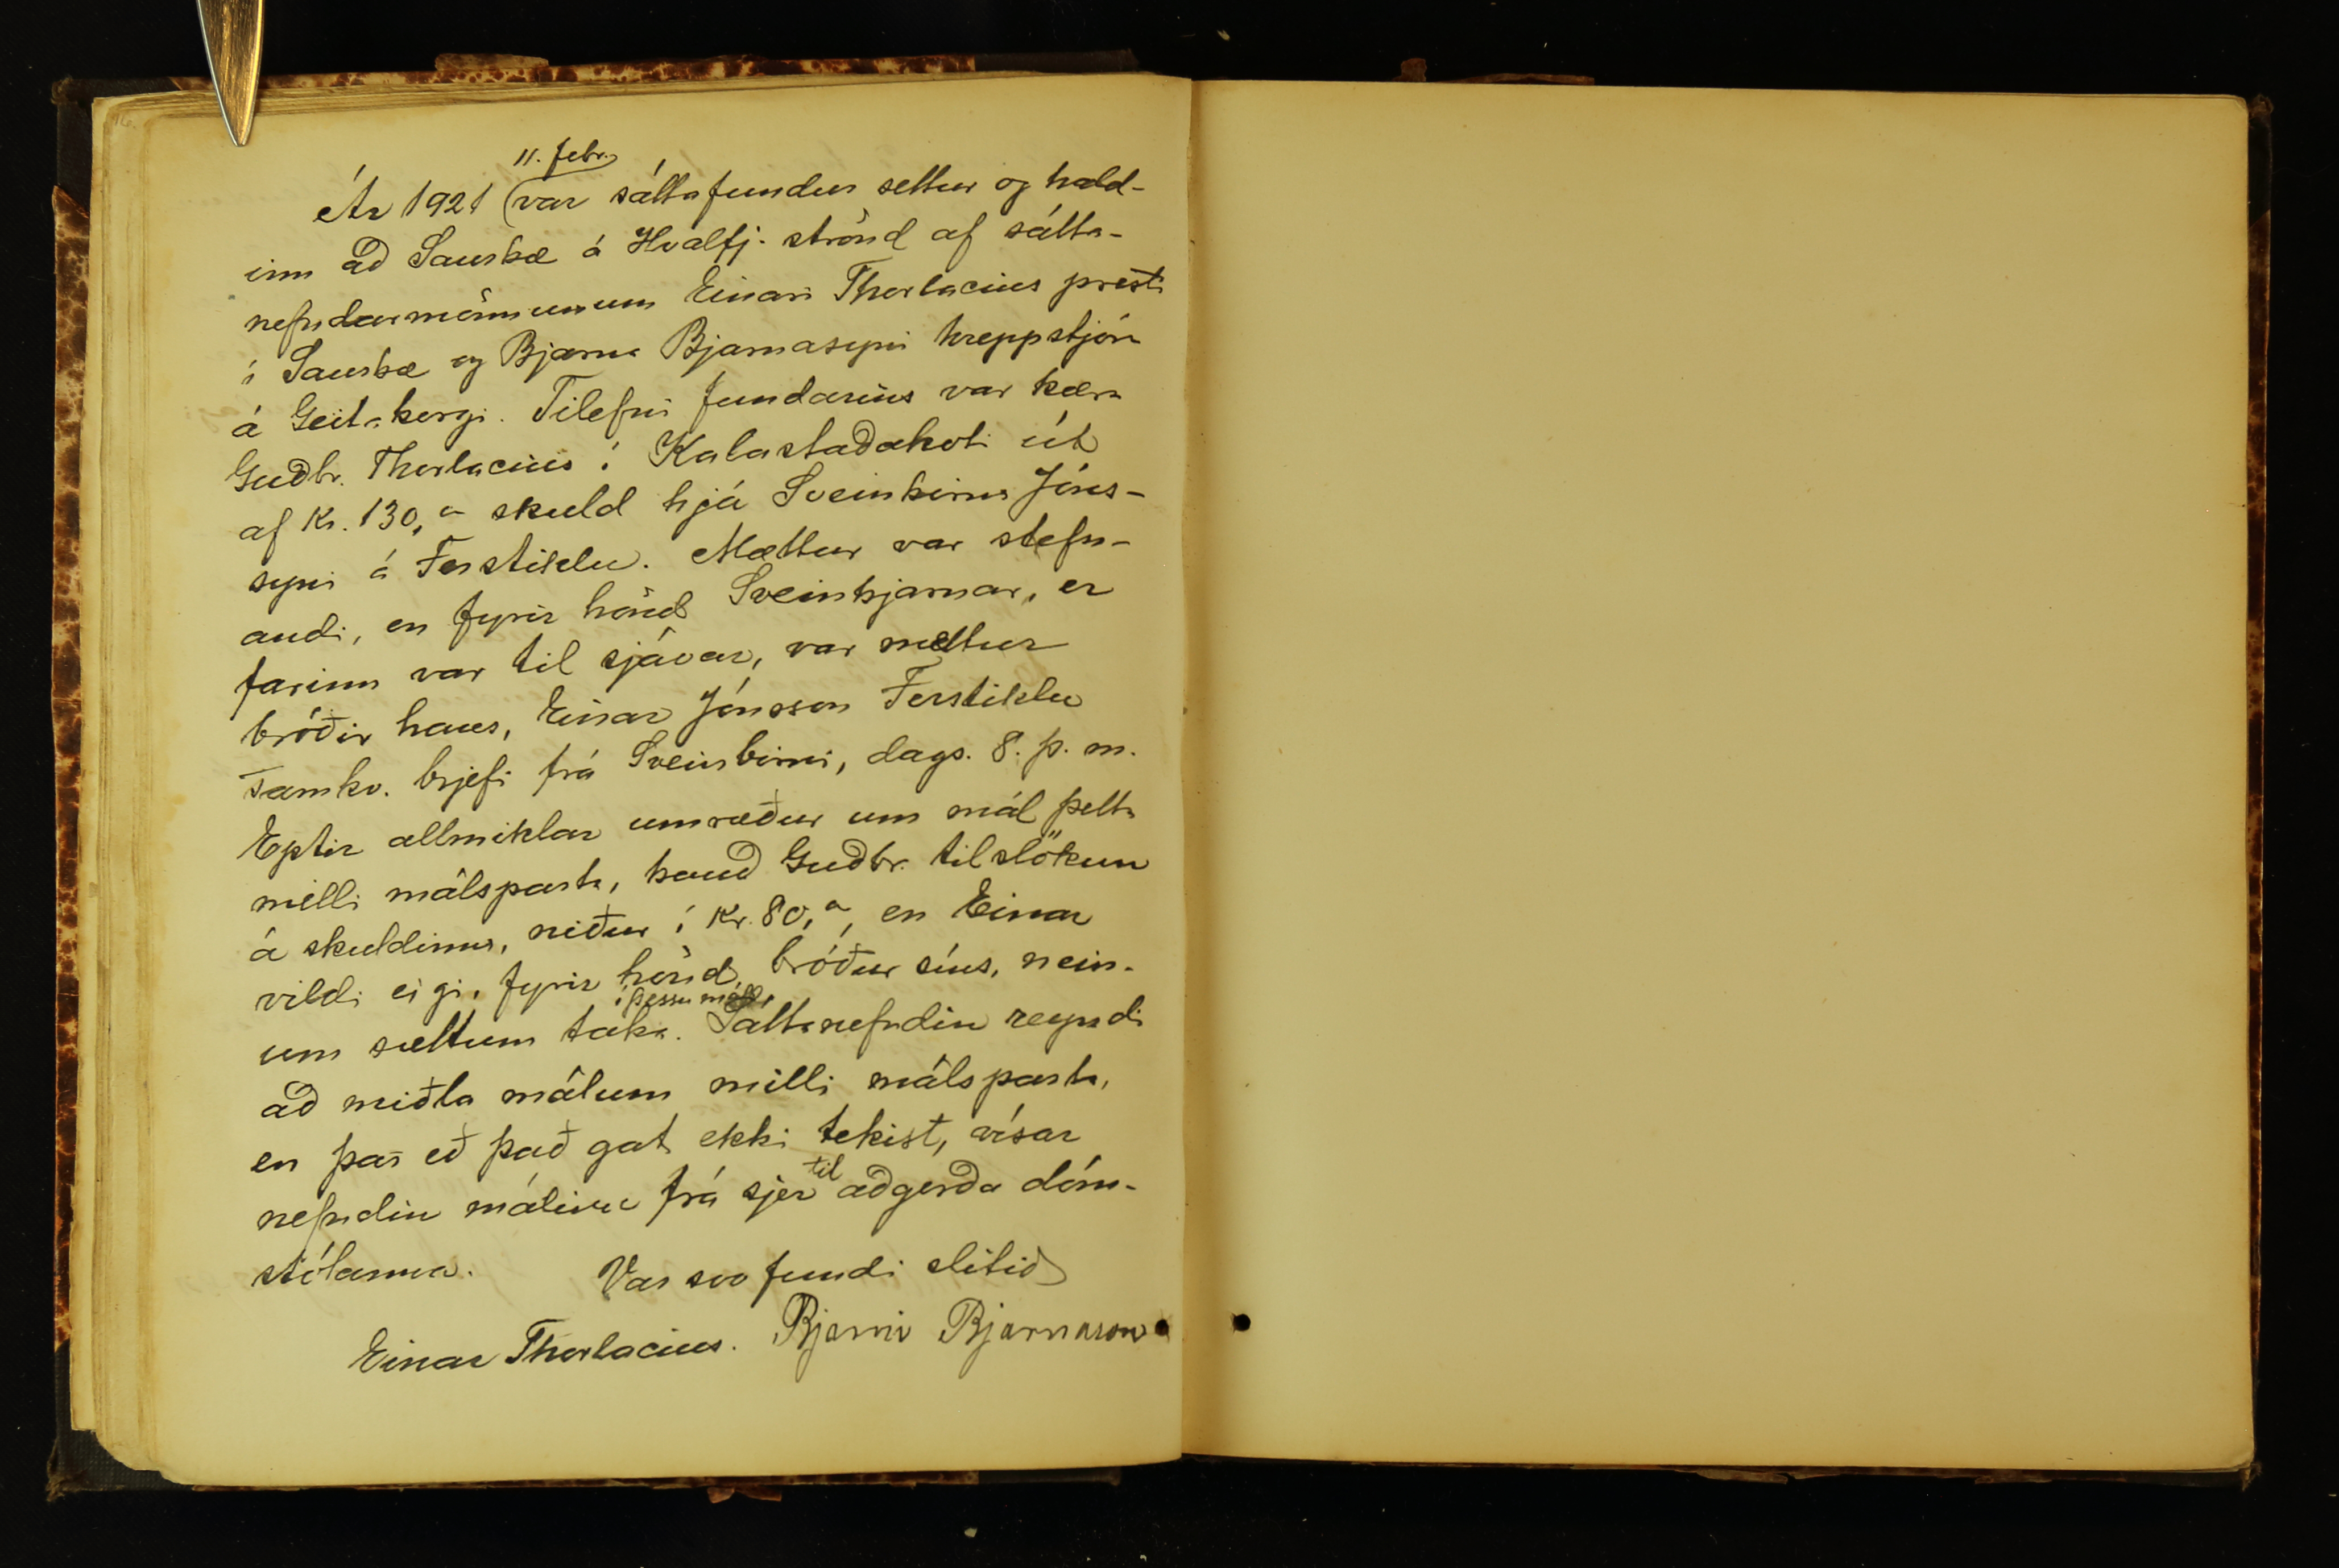 16.
11. febr.
Ár 1921 var sáttafundur settur og hald-
inn að Saurbæ á Hvalfj. strönd af sátta-
nefndarmönnunum Einari Thorlacius presti
í Saurbæ og Bjarna Bjarnasyni hreppstjóra
á Geitabergi. Tilefni fundarins var kæra
Guðbr. Thorlacius í Kalastaðakoti út
af Kr. 130,00 skuld hjá Sveinbirni Jóns-
syni á Ferstiklu. Mættur var stefn-
andi, en fyrir hönd Sveinbjarnar, er
farinn var til sjávar, var mættur
bróðir hans, Einar Jónsson Ferstiklu
samkv. brjefi frá Sveinbirni, dags. 8. þ. m.
Eptir allmiklar umræður um mál þetta
milli málsparta, bauð Guðbr. tilslökun
á skuldinni, niður í Kr. 80,00, en Einar
vildi eigi, fyrir hönd bróður síns, nein-
um sættum taka í þessu máli. Sáttanefndin reyndi
að miðla málum milli málsparta,
en þar eð það gat ekki tekist, vísar
nefndin málinu frá sjer til aðgerða dóm-
stólanna. Var svo fundi slitið
Einar Thorlacius. Bjarni Bjarnason